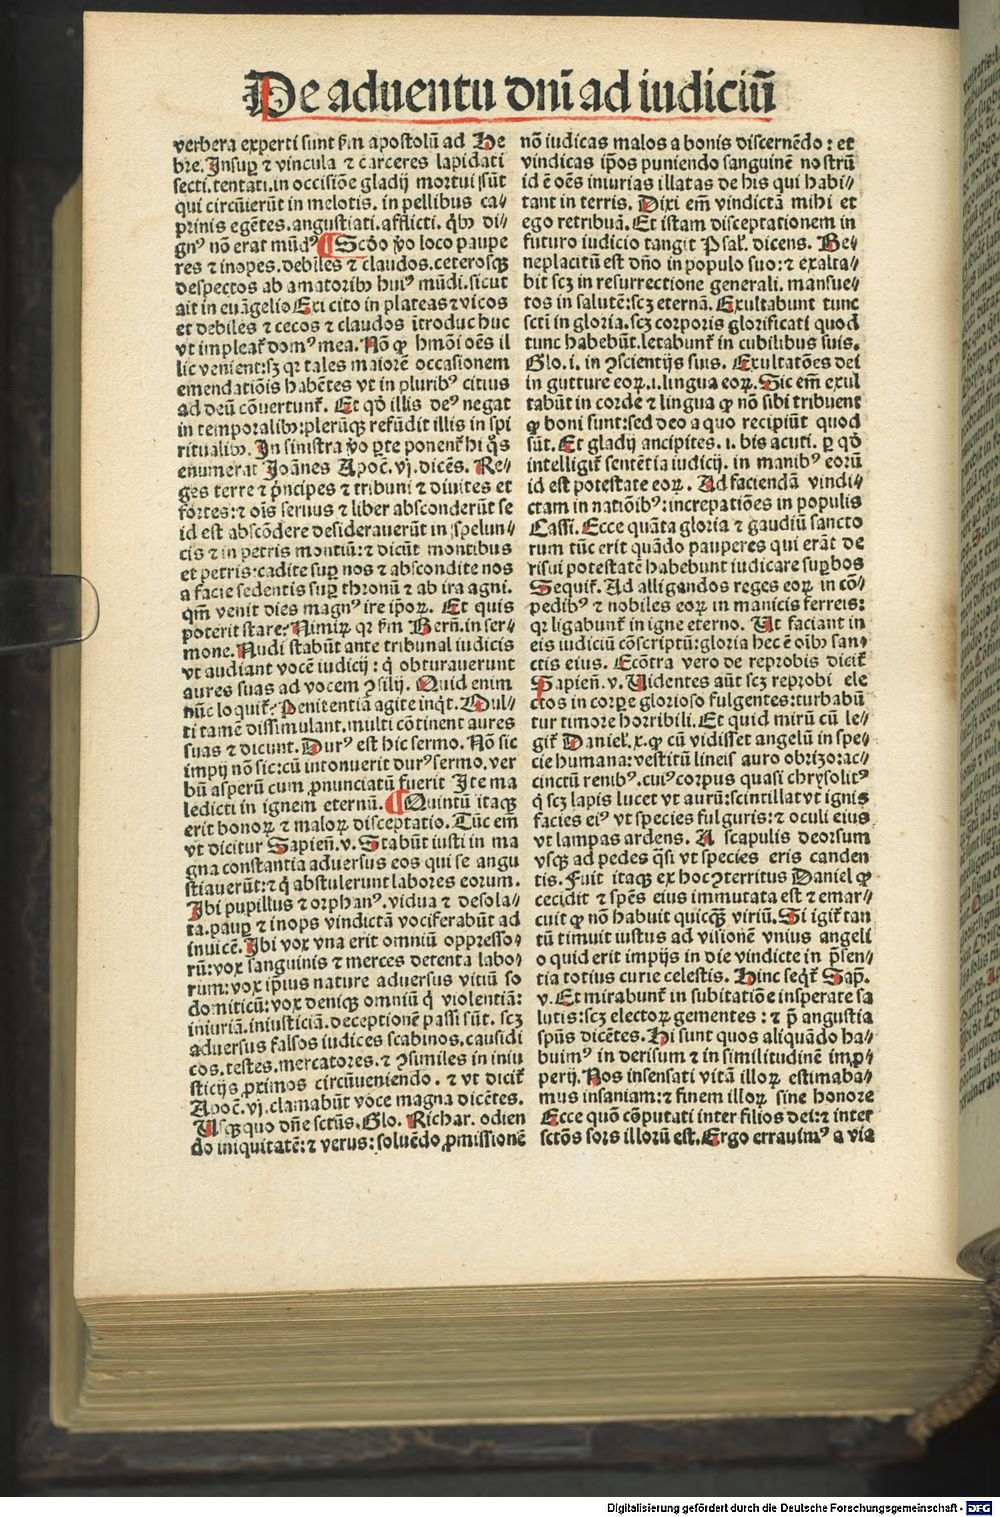 De aduentu dñi ad iudiciū
verbera experti sunt ẜm apostolū ad He
bre. Insuꝑ ⁊ vincula ⁊ carceres lapidati
secti. tentati. in occisiõe gladij mortui sũt
qui circũierũt in melotis. in pellibus ca⸗
prinis egẽtes. angustiati. afflicti. qͥbꝰ di⸗
gnꝰ nõ erat mũdꝰ ¶ Scd̃o v̊o loco paupe
res ⁊ inopes. debiles ⁊ claudos. ceterosqꝫ
despectos ab amatoribꝰ huiꝰ mũdi. sicut
ait in euãgelio Exi cito in plateas ⁊ vicos
et debiles ⁊ cecos ⁊ claudos ĩtroduc huc
vt impleat̃ domꝰ mea. Nõ ꝙ hmõi oẽs il
lic venient: sꝫ qꝛ tales maiorẽ occasionem
emendatiõis habẽtes vt in pluribꝰ citius
ad deũ cõuertunt̃. Et qd̃ illis deꝰ negat
in temporalibꝰ: plerũqꝫ refũdit illis in spi
ritualibꝰ. In sinistra v̊o ꝑte ponent̃ hi q̃s
enumerat Joãnes Apoc̃. vj. dicẽs. Re⸗
ges terre ⁊ p̃ncipes ⁊ tribuni ⁊ diuites et
fortes: ⁊ oĩs seruus ⁊ liber absconderũt se
id est abscõdere desiderauerũt in spelun⸗
cis ⁊ in petris montiũ: ⁊ dicũt montibus
et petris: cadite suꝑ nos ⁊ abscondite nos
a facie sedentis suꝑ thronũ ⁊ ab ira agni.
qm̃ venit dies magnꝰ ire ip̃oꝝ. Et quis
poterit stare? Nimiꝝ qꝛ ẜm Bern̄. in ser⸗
mone. Nudi stabũt ante tribunal iudicis
vt audiant vocẽ iudicij: qͥ obturauerunt
aures suas ad vocem ꝯsilij. Quid enim
nũc loquit̃? Penitentiã agite inqͥt. Mul⸗
ti tamẽ dissimulant. multi cõtinent aures
suas ⁊ dicunt. Durꝰ est hic sermo. Nõ sic
impij nõ sic: cũ intonuerit durꝰ sermo. ver
bũ asperũ cum ꝓnunciatũ fuerit Ite ma
ledicti in ignem eternũ. ¶ Quintũ itaqꝫ
erit bonoꝝ ⁊ maloꝝ disceptatio. Tũc em̃
vt dicitur Sapien̄. v. Stabũt iusti in ma
gna constantia aduersus eos qui se angu
stiauerũt: ⁊ qͥ abstulerunt labores eorum.
Ibi pupillus ⁊ orphanꝰ. vidua ⁊ desola⸗
ta. pauꝑ ⁊ inops vindictã vociferabũt ad
inuicẽ. Ibi vox vna erit omniũ oppresso⸗
rũ: vox sanguinis ⁊ merces detenta labo⸗
rum: vox ipsius nature aduersus vitiũ so
domiticũ: vox deniqꝫ omniũ qͥ violentiã:
iniuriã. iniusticiã. deceptionẽ passi sũt. scꝫ
aduersus falsos iudices scabinos. causidi
cos. testes. mercatores. ⁊ ꝯsimiles in iniu
sticijs ꝓximos circũueniendo. ⁊ vt dicit̃
Apoc̃. vj. clamabũt voce magna dicẽtes.
Usqꝫ quo dñe sctũs. Glo. Richar. odien
do iniquitatẽ: ⁊ verus: soluẽdo ꝓmissionẽ
nõ iudicas malos a bonis discernẽdo: et
vindicas ip̃os puniendo sanguinẽ nostrũ
id ẽ oẽs iniurias illatas de his qui habi⸗
tant in terris. Dixi em̃ vindictã mihi et
ego retribuã. Et istam disceptationem in
futuro iudicio tangit Psaĺ. dicens. Be⸗
neplacitũ est dño in populo suo: ⁊ exalta⸗
bit scꝫ in resurrectione generali. mansue⸗
tos in salutẽ: scꝫ eternã. Exultabunt tunc
scti̇ in gloria. scꝫ corporis glorificati quod
tunc habebũt. letabunt̃ in cubilibus suis.
Glo. i. in ꝯscientijs suis. Exultatões dei
in gutture eoꝝ. i. lingua eoꝝ. Sic em̃ exul
tabũt in corde ⁊ lingua ꝙ nõ sibi tribuent
ꝙ boni sunt: sed deo a quo recipiũt quod
sũt. Et gladij ancipites. i. bis acuti. ꝑ qd̃
intelligit̃ sentẽtia iudicij. in manibꝰ eorũ
id est potestate eoꝝ. Ad faciendã vindi⸗
ctam in natiõibꝰ: increpatiões in populis
Cassi. Ecce quãta gloria ⁊ gaudiũ sancto
rum tũc erit quãdo pauperes qui erãt de
risui potestatẽ habebunt iudicare suꝑbos
Sequit̃. Ad alligandos reges eoꝝ in cõ⸗
pedibꝰ ⁊ nobiles eoꝝ in manicis ferreis:
qꝛ ligabunt̃ in igne eterno. Ut faciant in
eis iudiciũ cõscriptũ: gloria hec ẽ oĩbꝰ san⸗
ctis eius. Ecõtra vero de reprobis dicit̃
Sapien̄. v. Uidentes aũt scꝫ reprobi ele
ctos in corꝑe glorioso fulgentes: turbabũ
tur timore horribili. Et quid mirũ cũ le⸗
git̃ Danieĺ. x. ꝙ cũ vidisset angelũ in spe⸗
cie humana: vestitũ lineis auro obrizo: ac⸗
cinctũ renibꝰ. cuiꝰ corpus quasi chrysolitꝰ
qͥ scꝫ lapis lucet vt aurũ: scintillat vt ignis
facies eiꝰ vt species fulguris: ⁊ oculi eius
vt lampas ardens. A scapulis deorsum
vsqꝫ ad pedes q̃si vt species eris canden
tis. Fuit itaqꝫ ex hoc ꝯterritus Daniel ꝙ
cecidit ⁊ spẽs eius immutata est ⁊ emar⸗
cuit ꝙ nõ habuit quicqꝫ̃ viriũ. Si igit̃ tan
tũ timuit iustus ad visionẽ vnius angeli
o quid erit impijs in die vindicte in p̃sen⸗
tia totius curie celestis. Hinc seqͥt̃ Sap̃.
v. Et mirabunt̃ in subitatiõe insperate sa
lutis: scꝫ electoꝝ gementes: ⁊ p̃ angustia
spũs dicẽtes. Hi sunt quos aliquãdo ha⸗
buimꝰ in derisum ⁊ in similitudinẽ imꝓ⸗
perij. Nos insensati vitã illoꝝ estimaba⸗
mus insaniam: ⁊ finem illoꝝ sine honore
Ecce quõ cõputati inter filios dei: ⁊ inter
sctõs sors illorũ est. Ergo errauimꝰ a via
Digitalisierung gefördert durch die Deutsche Forschungsgemeinschaft - DFG